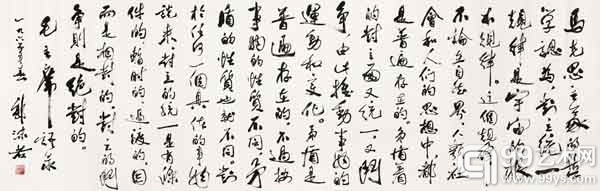 马克思主义的哲
学认为,对立统一
规律是宇宙的根
本规律。这个规律,
不论在自然界、人类社
会和人们的思想中,都
是普遍存在的。矛盾着
的对立面又统一,又斗
争,由此推动事物的
运动和变化。矛盾是
普遍存在的,不过按
事物的性质不同,矛
盾的性质也就不同。对
于任何一个具体的事物
说来,对立的统一是有条
件的、暂时的、过渡的,因
而是相对的,对立的斗
争则是绝对的。
毛主席语录
郭沫若
99艺术网